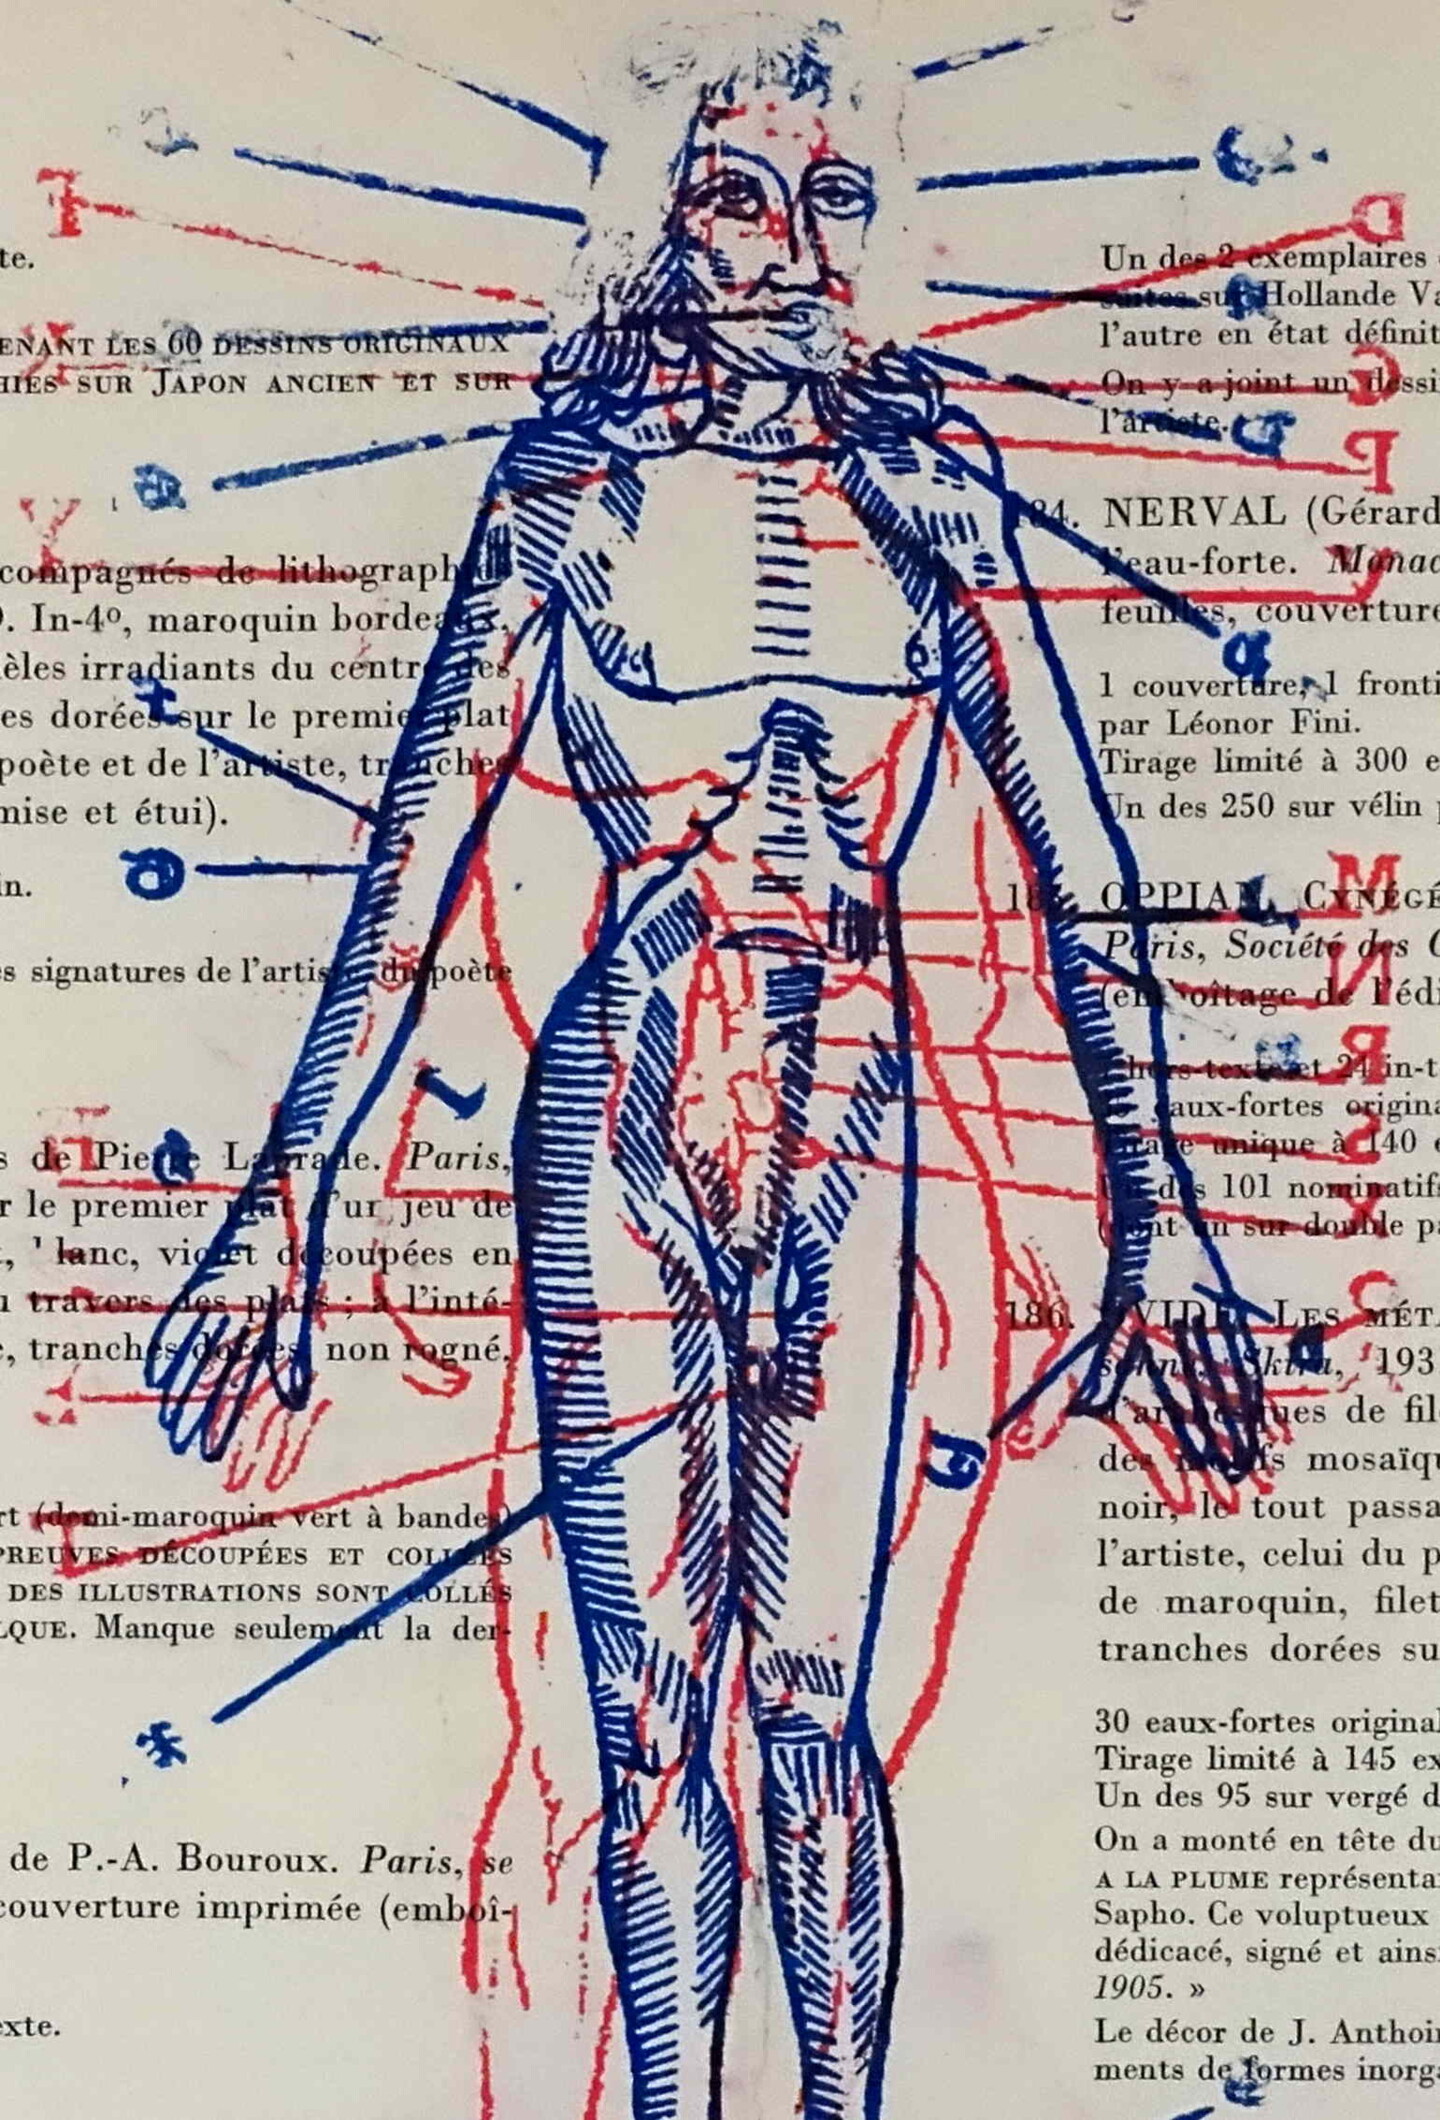 te.
ENANT LES 60 DESSINS ORIGINAUX
HIÉS SUR JAPON ANCIEN ET SUR
compagnés de lithograph
. In-4º, maroquin bordeaux,
èles irradiants du centre des
es dorées sur le premier plat
poète et de l'artiste, tranches
mise et étui).
in.
s signatures de l'artiste, du poète
s de Pierre Laprade. Paris,
r le premier plat d'un jeu de
lanc, violet découpées en
travers des plats ; à l'inté-
, tranches dorées, non rogné,
rt (demi-maroquin vert à bandes)
PREUVES DÉCOUPÉES ET COLLÉES
DES ILLUSTRATIONS SONT COLLÉS
LQUE. Manque seulement la der-
de P.-A. Bouroux. Paris, se
couverture imprimée (emboî-
exte.
Un des 2 exemplaires
suites sur Hollande Va
l'autre en état définit
On y a joint un dessi
l'artiste.
184. NERVAL (Gérard
l'eau-forte. Monac
feuilles, couverture
1 couverture, 1 fronti
par Léonor Fini.
Tirage limité à 300 e
Un des 250 sur vélin p
OPPIAN. CYNÉGÉ
Paris, Société des
(emboîtage de l'édi
hors-texte et 24 in-t
eaux-fortes origina
Tirage unique à 140 e
Un des 101 nominatifs
(dont un sur double pa
186. OVIDE. LES MÉTA
Skira, 193
d'arabesques de fil
des motifs mosaïqu
noir, le tout passa
l'artiste, celui du p
de maroquin, filet
tranches dorées su
30 eaux-fortes original
Tirage limité à 145 ex
Un des 95 sur vergé d
On a monté en tête du
A LA PLUME représenta
Sapho. Ce voluptueux
dédicacé, signé et ains
1905. »
Le décor de J. Anthoi
ments de formes inorg